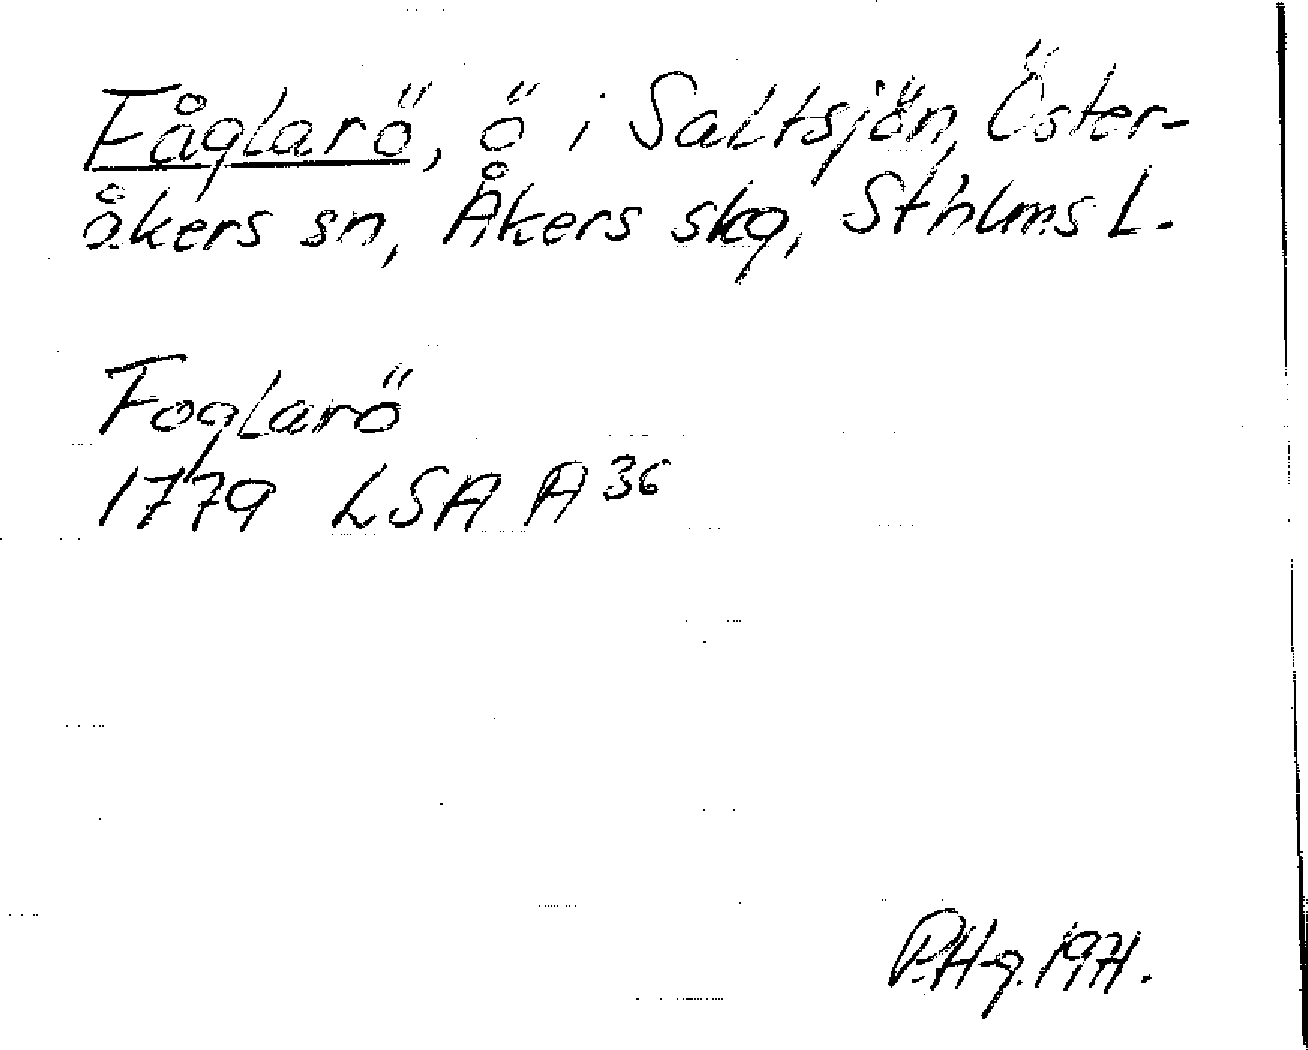 Fåglarö, ö i Saltsjön, Öster-
åkers sn, Åkers skg, Sthlms L.
Foglarö
1779 LSA A 36
P.Hg. 1971.